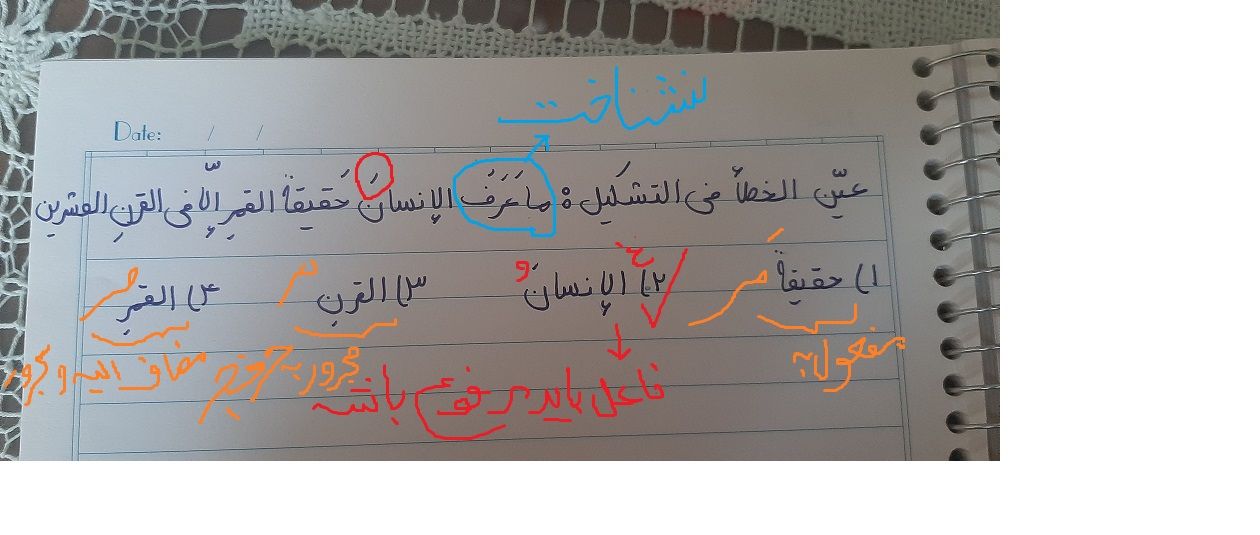 نشناخت
Date: / /
عيّن الخطأ فى التشكيل: ما عَرَفَ الإنسانَ حَقيقةَ القمرِ إلّا فى القرنِ العشرين
١) حقيقةَ ٢) الإنسانَ ٣) القرنِ ٤) القمرِ
مفعول به مجرور به حرف جر مضاف الیه و مجرور
فاعل باید مرفوع باشه